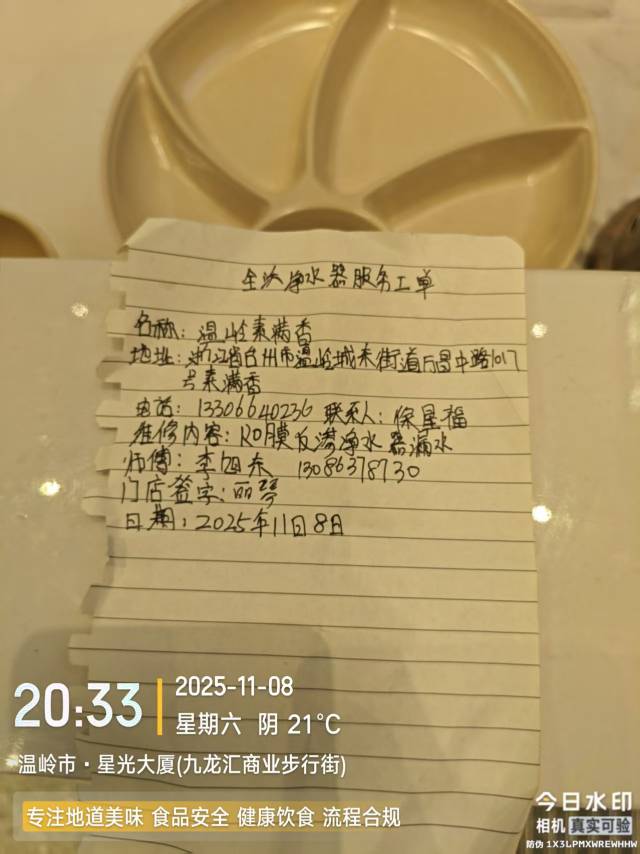 全沃净水器服务工单
名称：温岭素满香
地址：浙江省台州市温岭城东街道万昌中路1017
号素满香
电话：13306640236 联系人：徐星福
维修内容：RO膜反渗净水器漏水
师傅：李旭东 13086378730
门店签字：丽琴
日期：2025年11日8日
20:33
2025-11-08
星期六 阴 21°C
温岭市·星光大厦(九龙汇商业步行街)
专注地道美味 食品安全 健康饮食 流程合规
今日水印
相机 真实可验
防伪 1X3LPMXWREWHHW